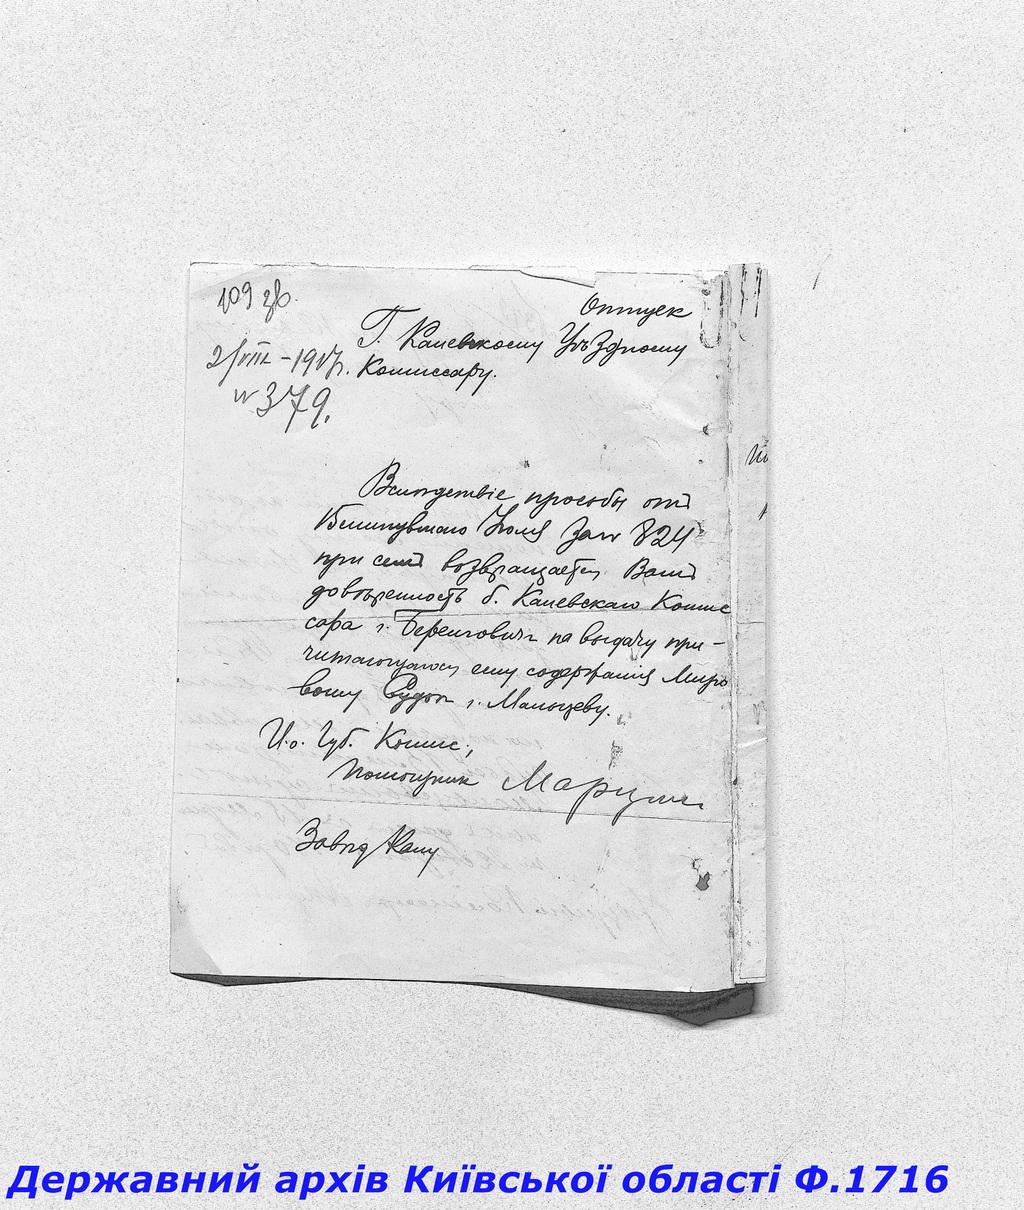 109 зв.
Отпуск
Г. Каневскому Уѣздному
2/VIII – 1917г. Комиссару.
№ 379.
Вслѣдствіе просьбы отъ
Іюля за № 824
при семъ возвращается Вамъ
довѣренность б. Каневскаго Комис
сара г. на выдачу при–
читающагося ему содержанія Миро
вому Судьѣ г. Мальцеву.
И.о. Губ. Комис.,
Помощникъ
Завѣд
Державний архів Київської області Ф.1716